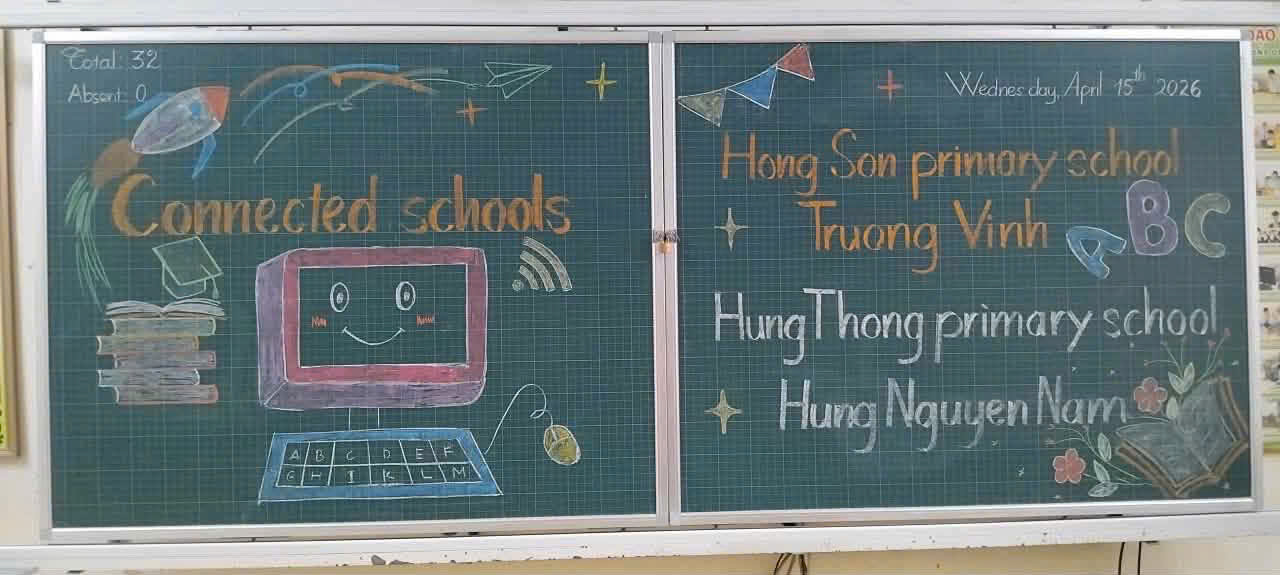 Total: 32
Absent: 0
Connected schools
A B C D E F
G H I K L M
Wednesday, April 15th 2026
Hong Son primary school
Truong Vinh
A B C
Hung Thong primary school
Hung Nguyen Nam